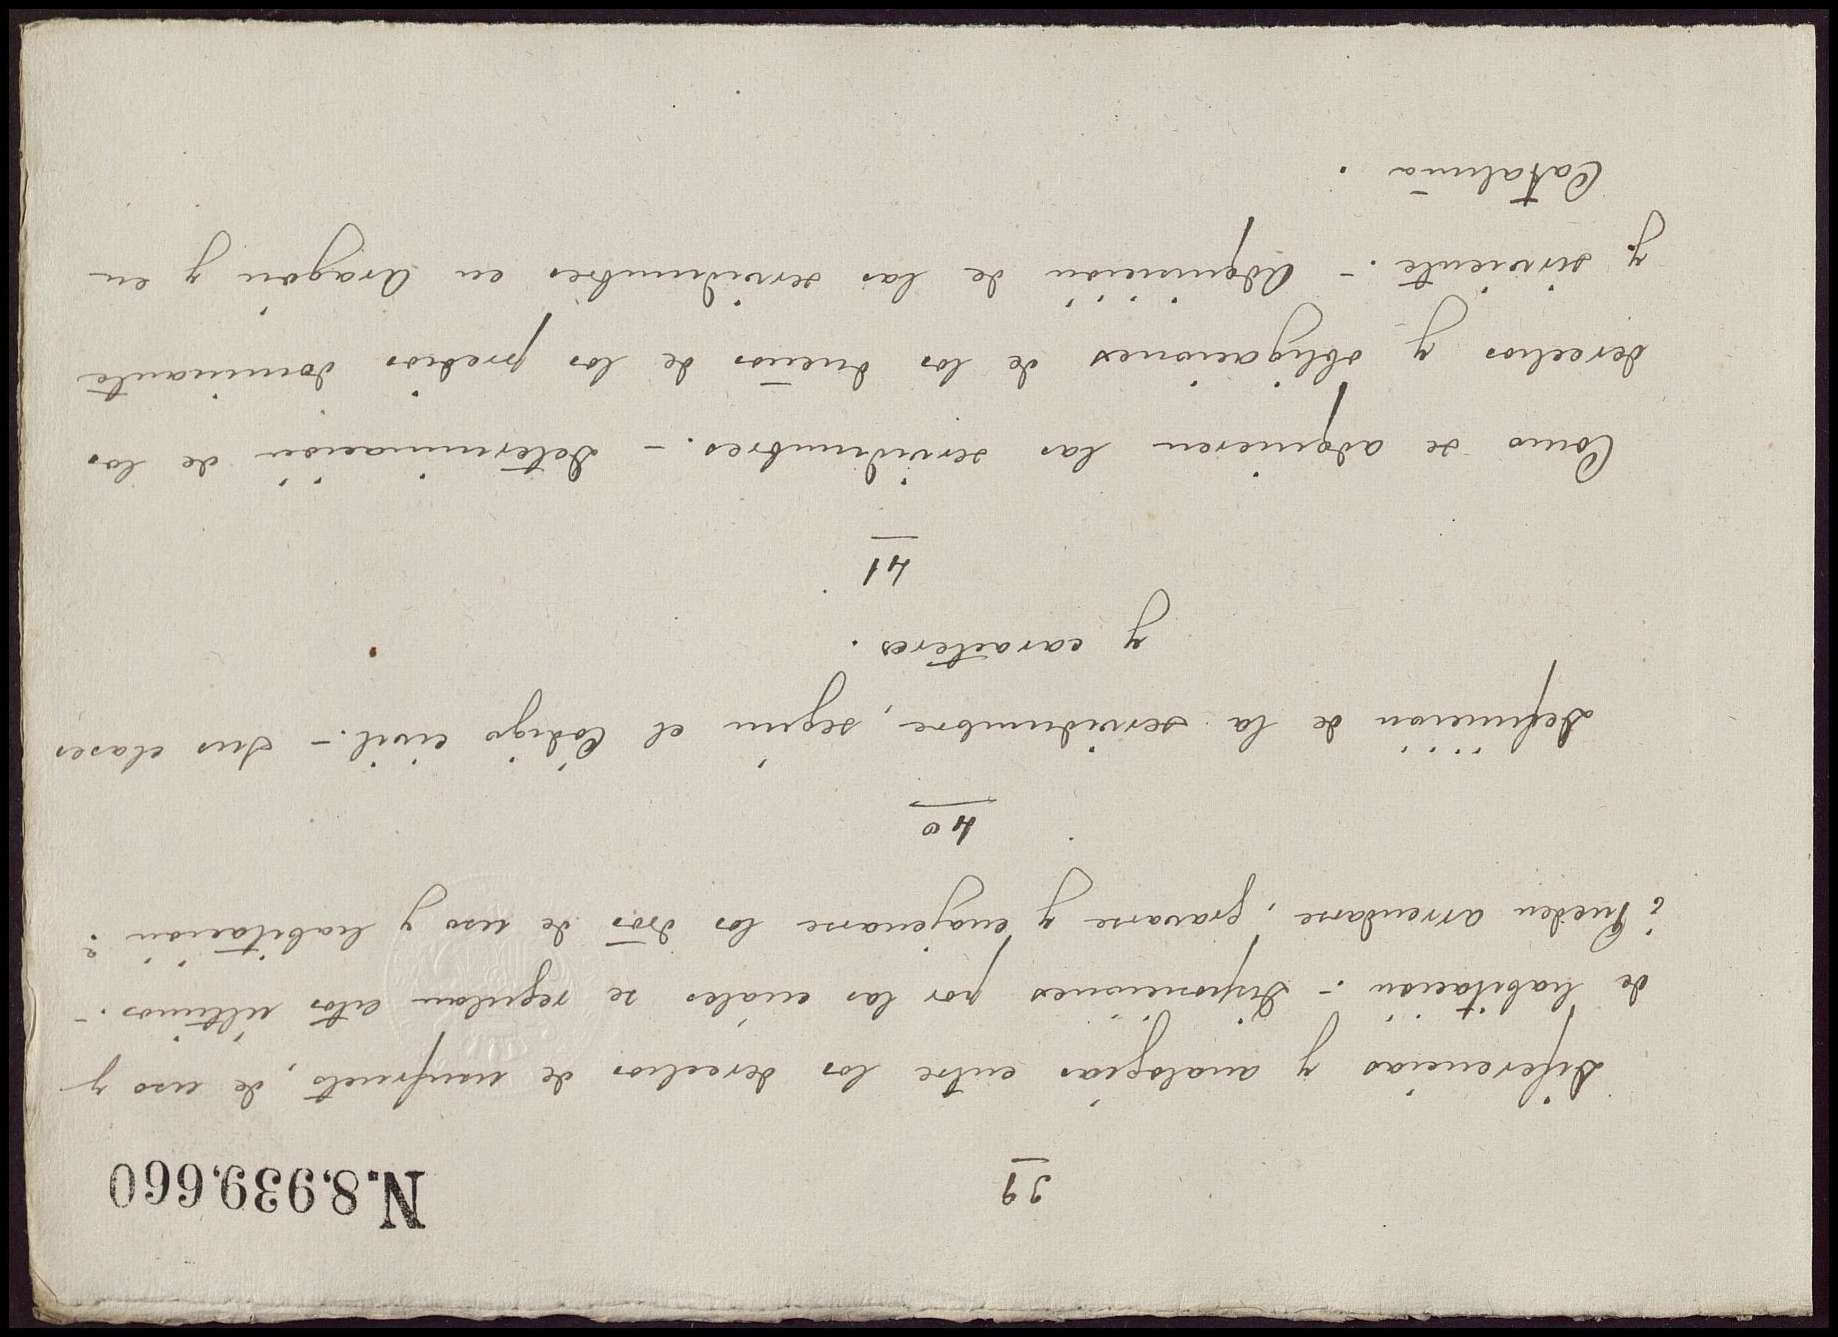 39
N.8,939,660
Diferencias y analogías entre los derechos de usufructo, de uso y
de habitación.- Disposiciones por las cuales se regulan estos últimos.-
¿Pueden arrendarse, gravarse y enajenarse los dros de uso y habitación?
40
Definición de la servidumbre, según el Código civil.- Sus clases
y caracteres.
41
Como se adquieren las servidumbres.- Determinación de los
derechos y obligaciones de los dueños de los predios dominante
y sirviente.- Adquisición de las servidumbres en Aragón y en
Cataluña.